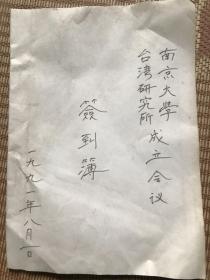 南京大学
台湾研究所成立会议
簽到簿
一九九一年八月一日